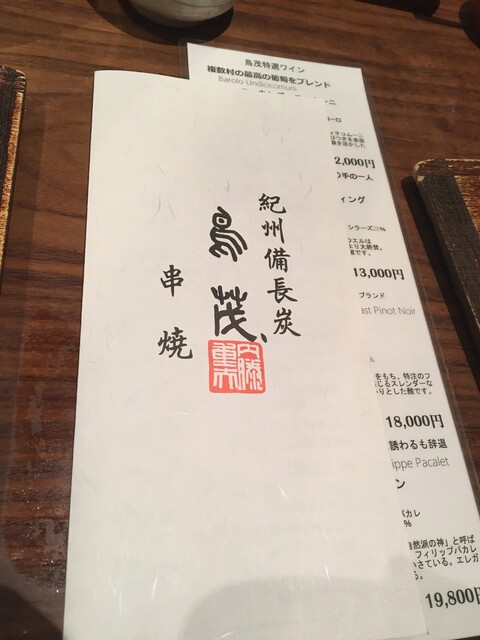 紀州備長炭
鳥茂
串焼
鳥茂特選ワイン
複数村の最高の葡萄をブレンド
Barolo Undicicomuni
2,000円
の手の一人
ィング
シリーズ
13,000円
ブランド
ast Pinot Noir
18,000円
誘わるも辞退
ippe Pacalet
ン
パカレ
自然派の神」と呼ば
フィリップパカレ
いさている。エレガ
19,800円